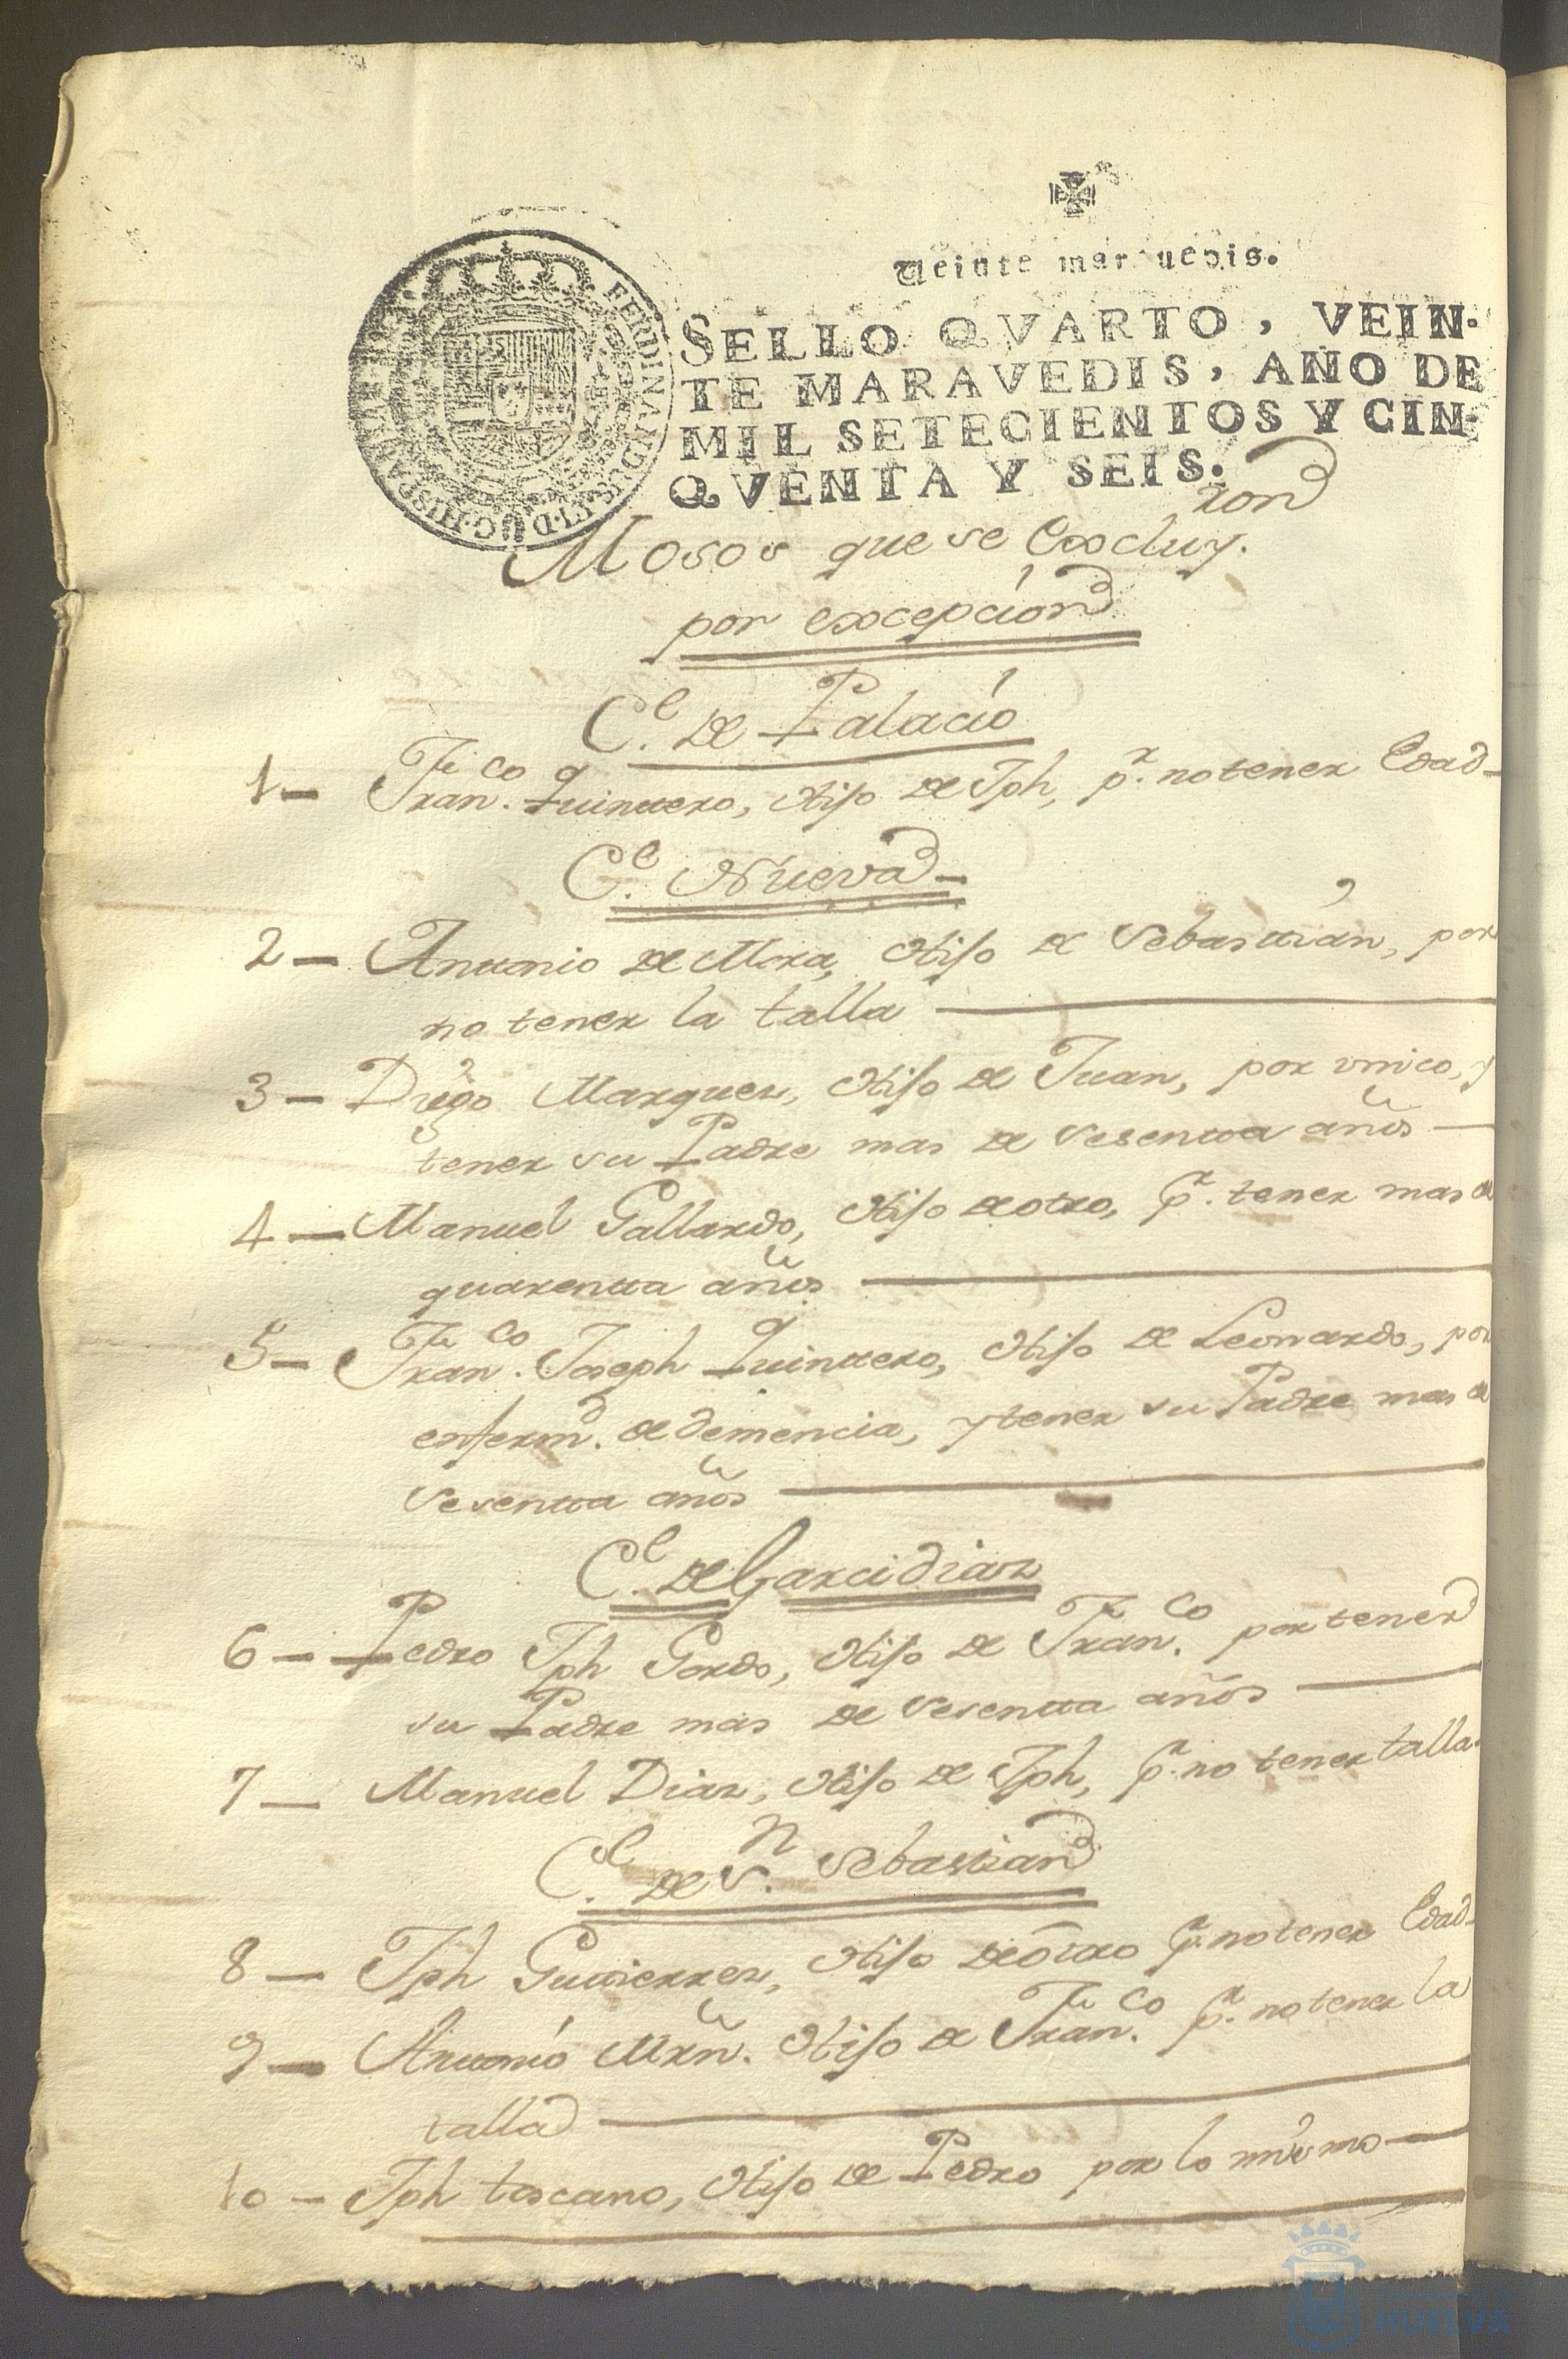 Veinte marauedis.
SELLO QVARTO, VEIN-
TE MARAVEDIS, AÑO DE
MIL SETECIENTOS Y CIN-
QVENTA Y SEIS.
Mosos que se Excluy.
ron
por excepcion
C.e de Palacio
1 - Fran.co Quintero, Hijo de Jph, p.r no tener Edad -
C.e Nueva -
2 - Antonio de Mora, Hijo de Sebastian, por
no tener la talla
3 - Diego Marquez, Hijo de Juan, por vnico, y
tener su Padre mas de sesenta años -
4 - Manuel Gallardo, Hijo de otro, p.r tener mas de
quarenta años
5 - Fran.co Joseph Quintero, Hijo de Leonardo, por
enferm.d de demencia, y tener su Padre mas de
sesenta años
C.e de Garcidiaz
6 - Pedro Jph Gordo, Hijo de Fran.co por tener
su Padre mas de sesenta años -
7 - Manuel Diaz, Hijo de Jph, p.r no tener talla -
C.e de S.n Sebastian
8 - Jph Gutierrez, Hijo de otro p.r no tener Edad -
9 - Antonio Mrñ. Hijo de Fran.co p.r no tener la
talla
10 - Jph toscano, Hijo de Pedro por lo mismo -
HUELVA